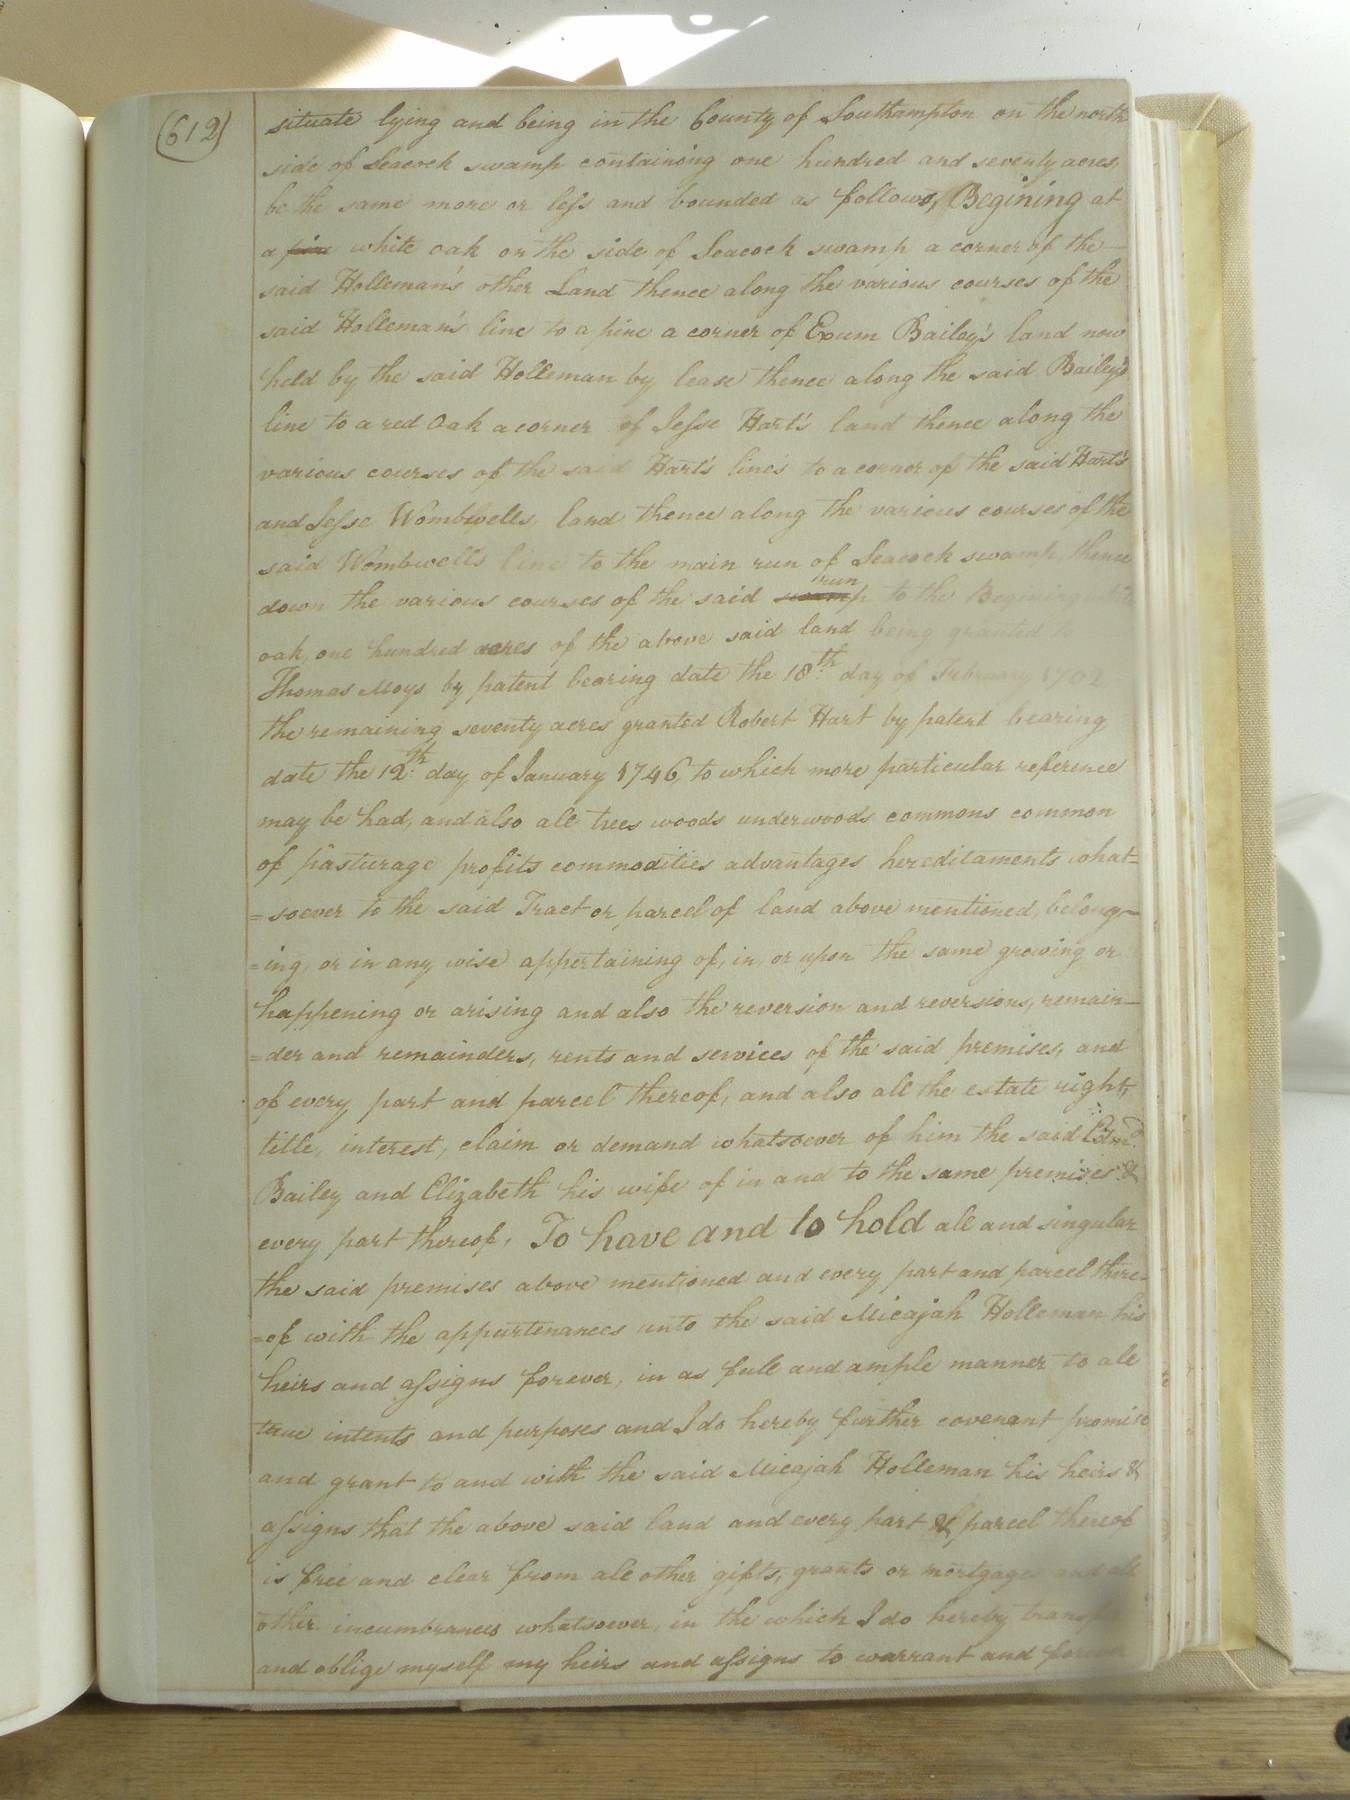 (612)
situate lying and being in the County of Southampton on the north
side of Seacock swamp containing one hundred and seventy acres,
be the same more or less and bounded as follows, Begining at
a pine white oak on the side of Seacock swamp a corner of the
said Holleman's other Land thence along the various courses of the
said Holleman's line to a pine a corner of Exum Bailey's land now
held by the said Holleman by lease thence along the said Bailey's
line to a red Oak a corner of Jesse Hart's land thence along the
various courses of the said Hart's lines to a corner of the said Hart's
and Jesse Wombwells land thence along the various courses of the
said Wombwell's line to the main run of Seacock swamp, thence
run
down the various courses of the said swamp to the Begining
oak, one hundred acres of the above said land being granted to
Thomas Moys by patent bearing date the 18th day of February 1702
the remaining seventy acres granted Robert Hart by patent bearing
date the 12th day of January 1746, to which more particular reference
may be had, and also all trees woods underwoods commons common
of pasturage profits commodities advantages hereditaments what=
=soever to the said Tract or parcel of land above mentioned, belong-
=ing, or in any wise appertaining of, in, or upon the same growing or
happening or arising and also the reversion and reversions, remain-
=der and remainders, rents and services of the said premises, and
of every part and parcel thereof, and also all the estate right,
title, interest, claim or demand whatsoever of him the said Edmd
Bailey and Elizabeth his wife of in and to the same premises &
every part thereof, To have and to hold all and singular
the said premises above mentioned and every part and parcel there-
=of with the appurtenances unto the said Micajah Holleman his
heirs and assigns forever, in as full and ample manner to all
true intents and purposes and I do hereby further covenant promise
and grant to and with the said Micajah Holleman his heirs &
assigns that the above said land and every part & parcel thereof
is free and clear from all other gifts, grants or mortgages and all
other incumbrances whatsoever, in the which I do hereby
and oblige myself my heirs and assigns to warrant and